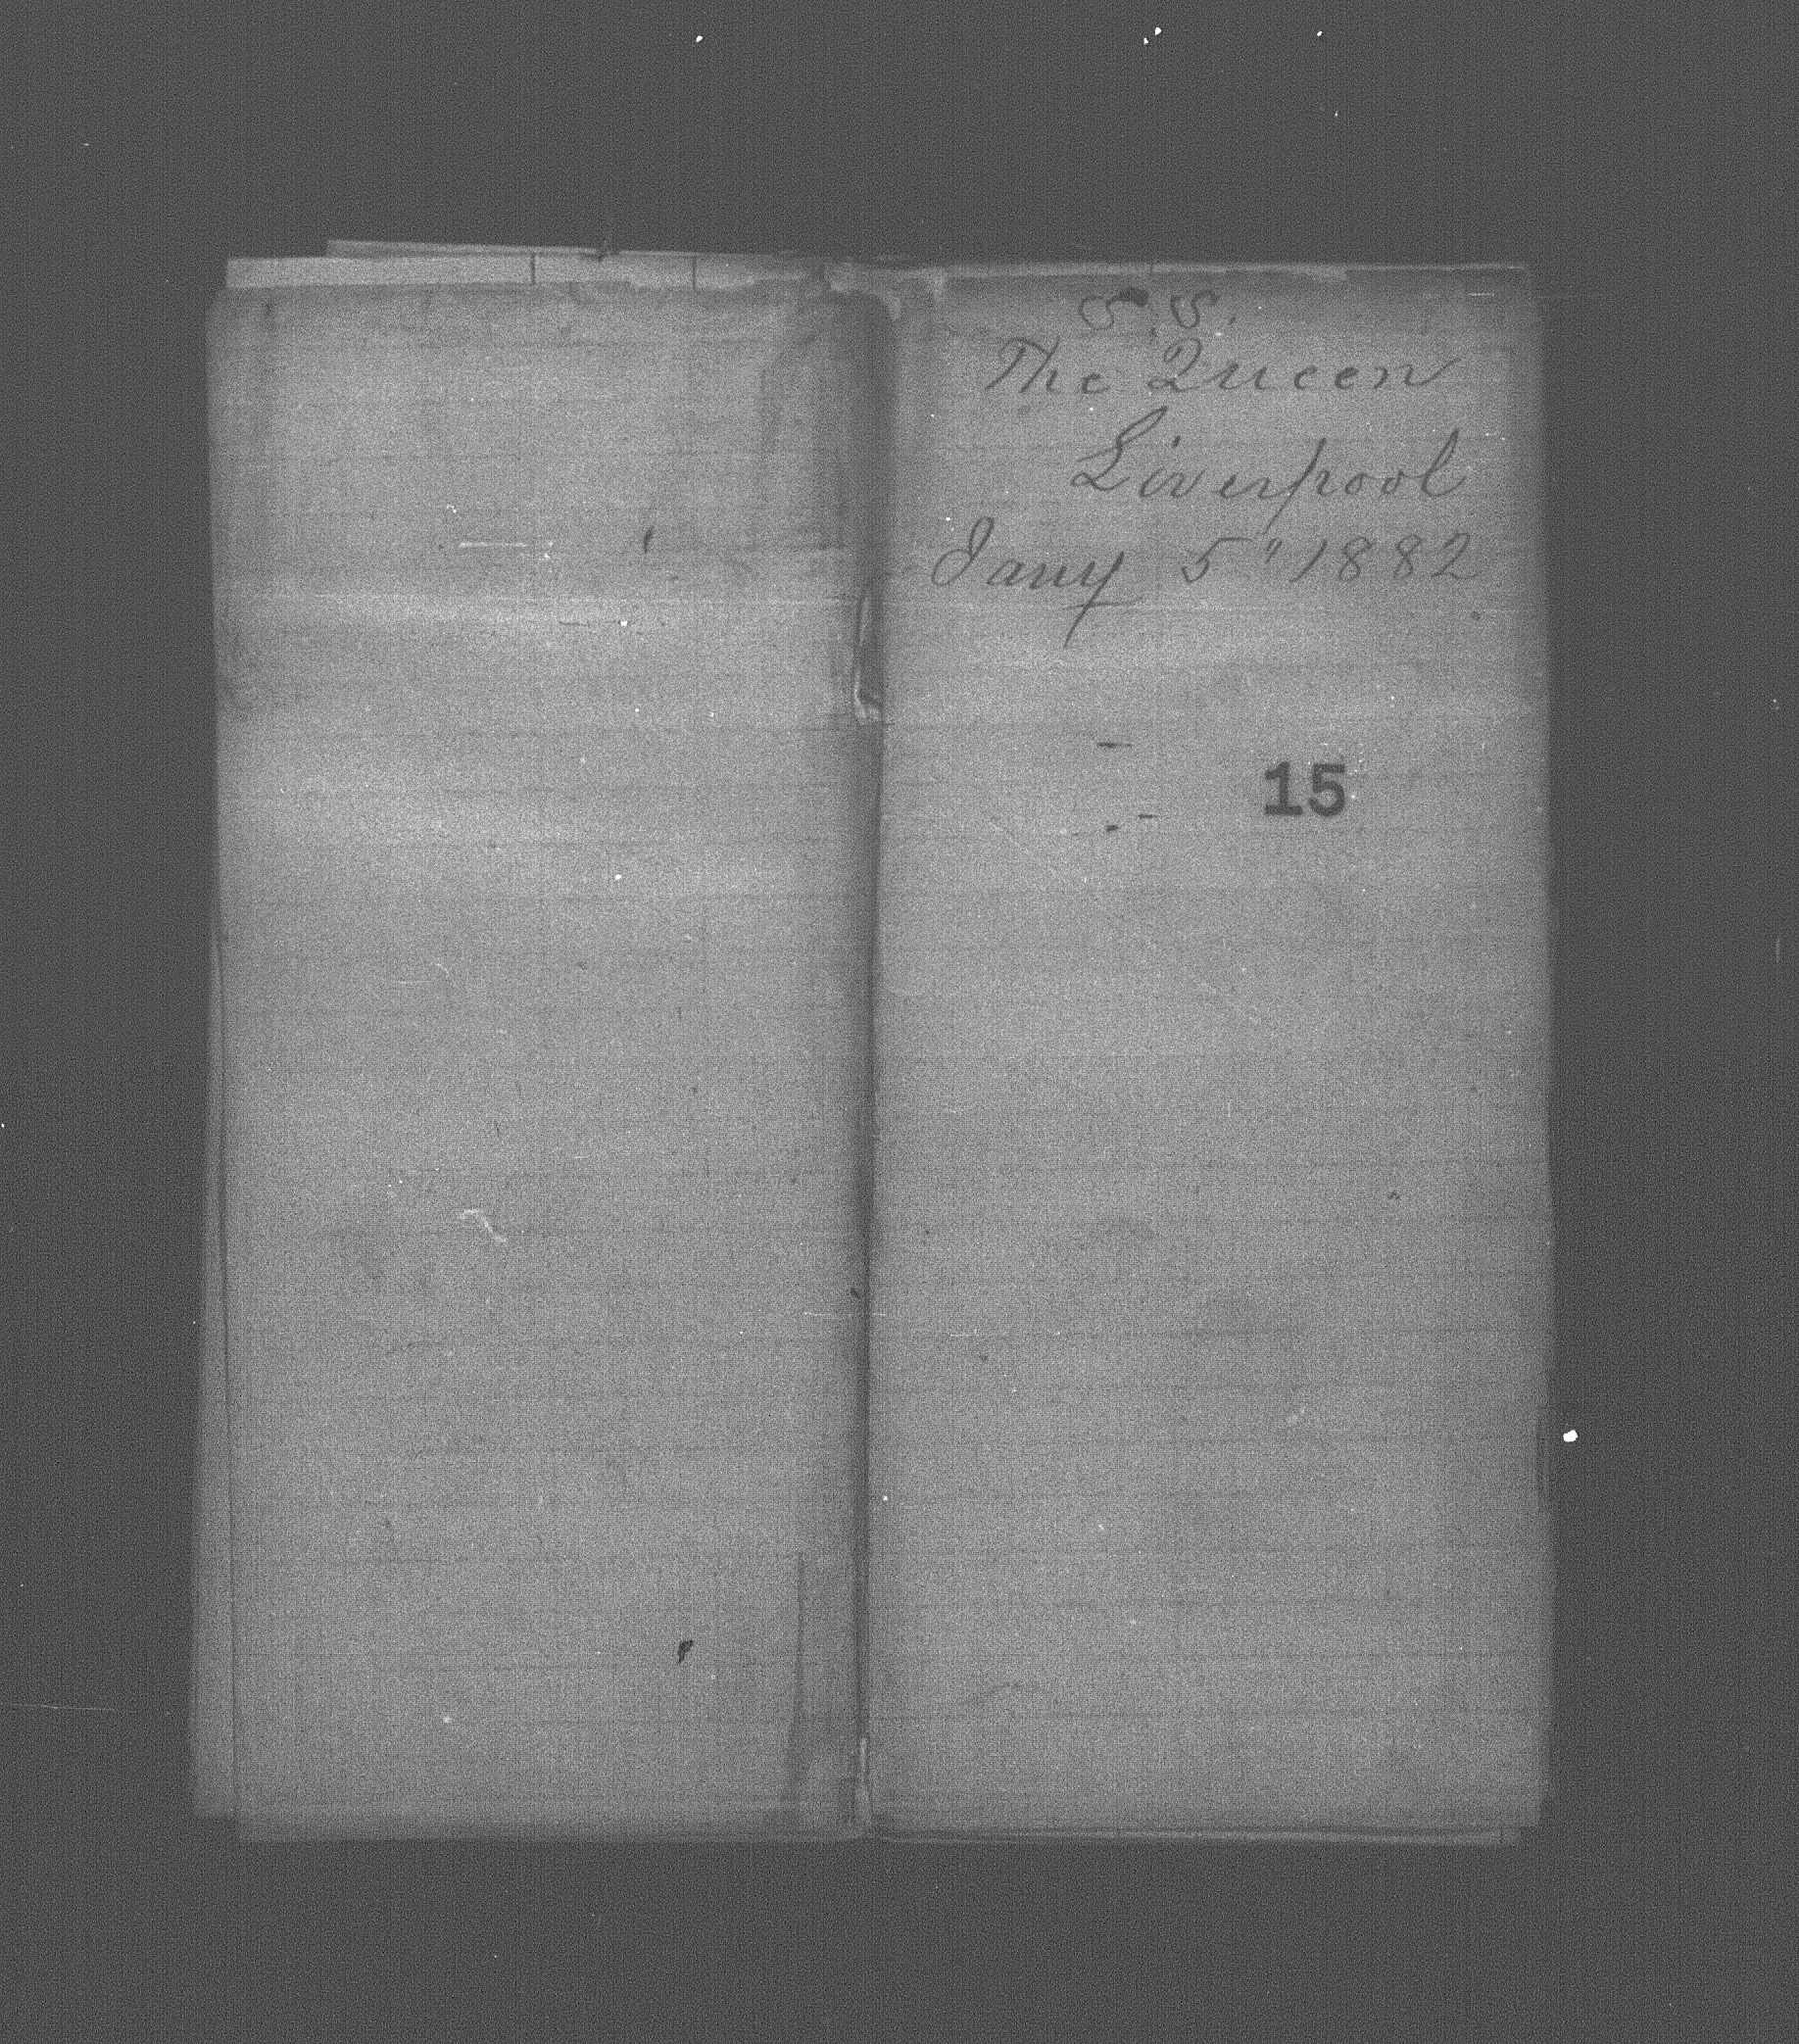 S.S.
The Queen
Liverpool
Jany 5" 1882
15